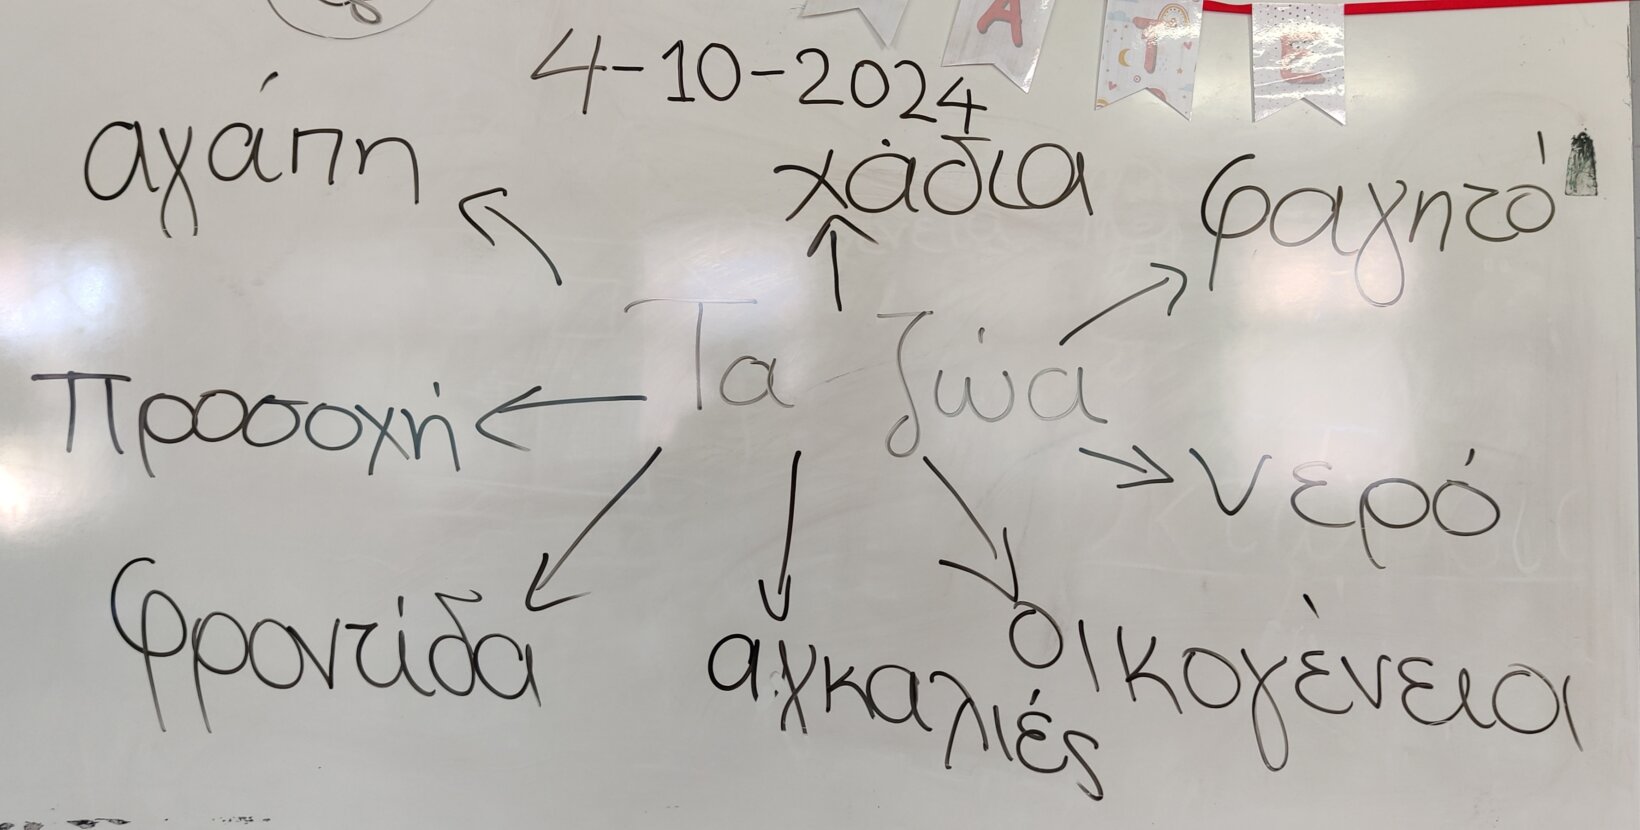 Α Τ Ε
4-10-2024
αγάπη
χάδια
φαγητό
Τα ζώα
προσοχή
νερό
φροντίδα
αγκαλιές
οικογένεια